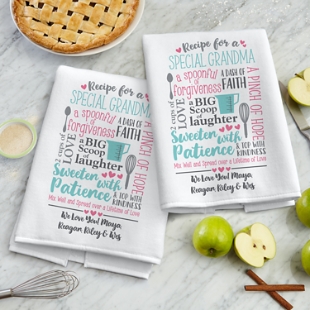 Recipe for a
SPECIAL GRANDMA
a spoonful
of
forgiveness
A DASH OF
FAITH
2 cups of
LOVE
a BIG
Scoop
of
laughter
A PINCH OF HOPE
Sweeten
with
Patience
& TOP WITH
KINDNESS
Mix Well and Spread over a Lifetime of Love
We Love You! Maya,
Reagan, Riley & Wes
Recipe for a
SPECIAL GRANDMA
a spoonful
of
forgiveness
A DASH OF
FAITH
2 cups of
LOVE
a BIG
Scoop
of
laughter
A PINCH OF HOPE
Sweeten
with
Patience
& TOP WITH
KINDNESS
Mix Well and Spread over a Lifetime of Love
We Love You! Maya,
Reagan, Riley & Wes